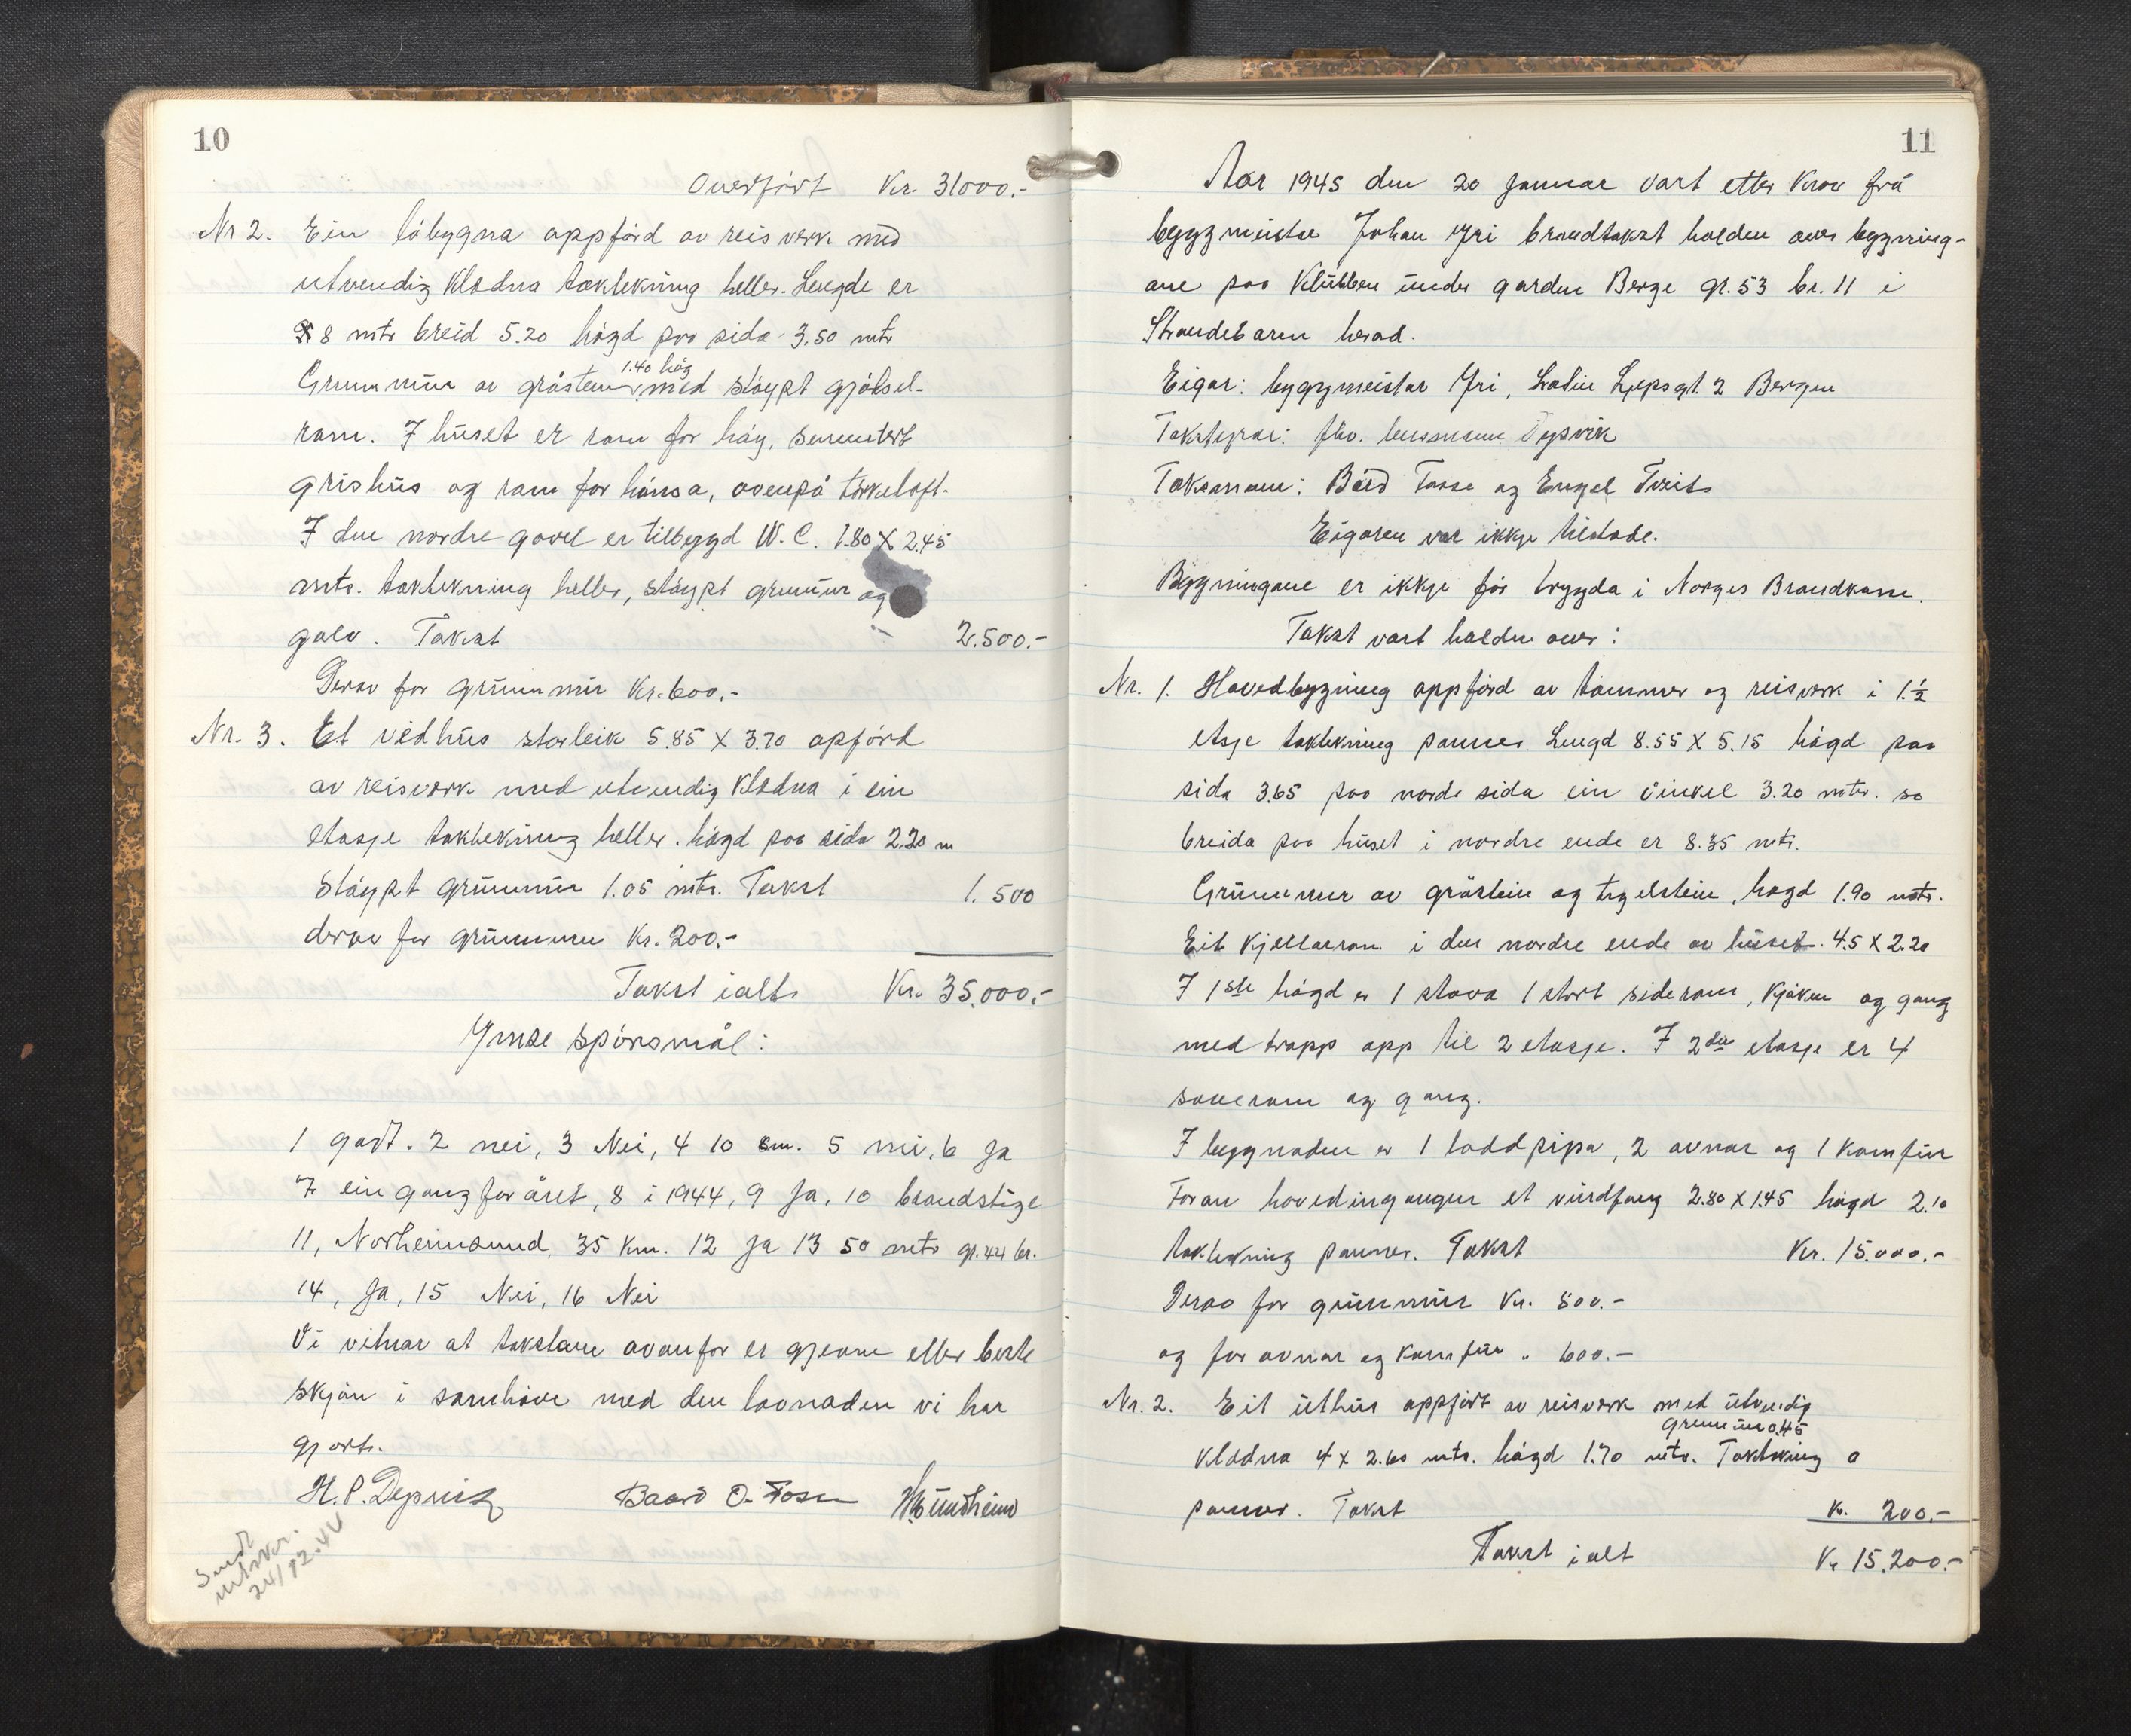 10
Overført Kr. 31000.-
Nr 2. Ein låbygna oppførd av reisverk med
utvendig Kledna taktekning heller. Lengde er
8 mtr breid 5.20 høgd paa sida 3.50 mtr
1.40 høg
Grunnmur av gråstein med støypt gjødsel-
rom. I huset er rom for høy, sementert
grishus og rom for hønsa, ovenpå tørkeloft.
I den nordre gavel er tilbyggd W.C. 1.80 X 2.45
mtr. taktekning heller, støypt grunnur og
golv. Takst 2.500.-
Derav for grunnmur Kr. 600.-
Nr. 3. Et vedhus storleik 5.85 X 3.70 opførd
av reisverk med utvendig Kledna i ein
etasje taktekning heller. høgd paa sida 2.20 m
Støypt grunnmur 1.05 mtr. Takst 1.500
derav for grunnmur Kr. 200.-
Takst ialt Kr. 35.000.-
Ymse spørsmål:
1 godt. 2 nei, 3 Nei, 4 10 cm. 5 nei, 6 Ja
7 ein gang for året, 8 i 1944, 9 Ja, 10 brandstige
11, Norheimsund, 35 Km. 12 Ja 13 50 mtr gr. 44 br.
14, Ja, 15 Nei, 16 Nei
Vi vitnar at takstane ovanfor er gjevne etter beste
skjøn i samhøve med den lovnaden vi har
gjort.
H. P. Depuis Baard O. Fosse
Sendt
utskr.
24/12.44
11
Aar 1945 den 20 Januar vart etter Krav frå
byggmeister Johan Yri brandtakst halden over bygning-
ane paa Klubben under garden Berge gr. 53 br. 11 i
Strandebarm herad.
Eigar: byggmeistar Yri, Ladin Lepsgt. 2 Bergen
Takststyrar: fhv. lensmann Dysvik
Taksmenn: Bård Fosse og Engel Tveit
Eigaren var ikkje tilstade.
Bygningane er ikkje før trygda i Norges Brandkasse.
Takst vart halden over:
Nr. 1. Hovedbygning oppførd av tømmer og reisverk i 1.½
etasje taktekning panner. Lengd 8.55 X 5.15 høgd paa
sida 3.65 paa nordr sida ein vinkel 3.20 mtr. so
breida paa huset i nordre ende er 8.35 mtr.
Grunnmur av gråstein og teglstein, høgd 1.90 mtr.
Eit Kjellarrom i den nordre ende av huset. 4.5 X 2.20
I 1ste høgd er 1 stova 1 stort siderom, Kjøken og gang
med trapp opp til 2 etasje. I 2den etasje er 4
soverom og gang.
I byggnaden er 1 laddpipa, 2 ovnar og 1 Komfur
Foran hovedingangen et vindfang 2.80 X 1.45 høgd 2.10
taktekning panner. Takst Kr. 15.000.-
Derav for grunnmur Kr. 800.-
og for ovnar og Komfur " 600.-
Nr. 2. Eit uthus oppført av reisverk med utvendig
grunnmur 0.45
Kledna 4 x 2.60 mtr. høgd 1.70 mtr. Taktekning a
panner. Takst Kr. 200.-
Takst ialt Kr 15.200.-